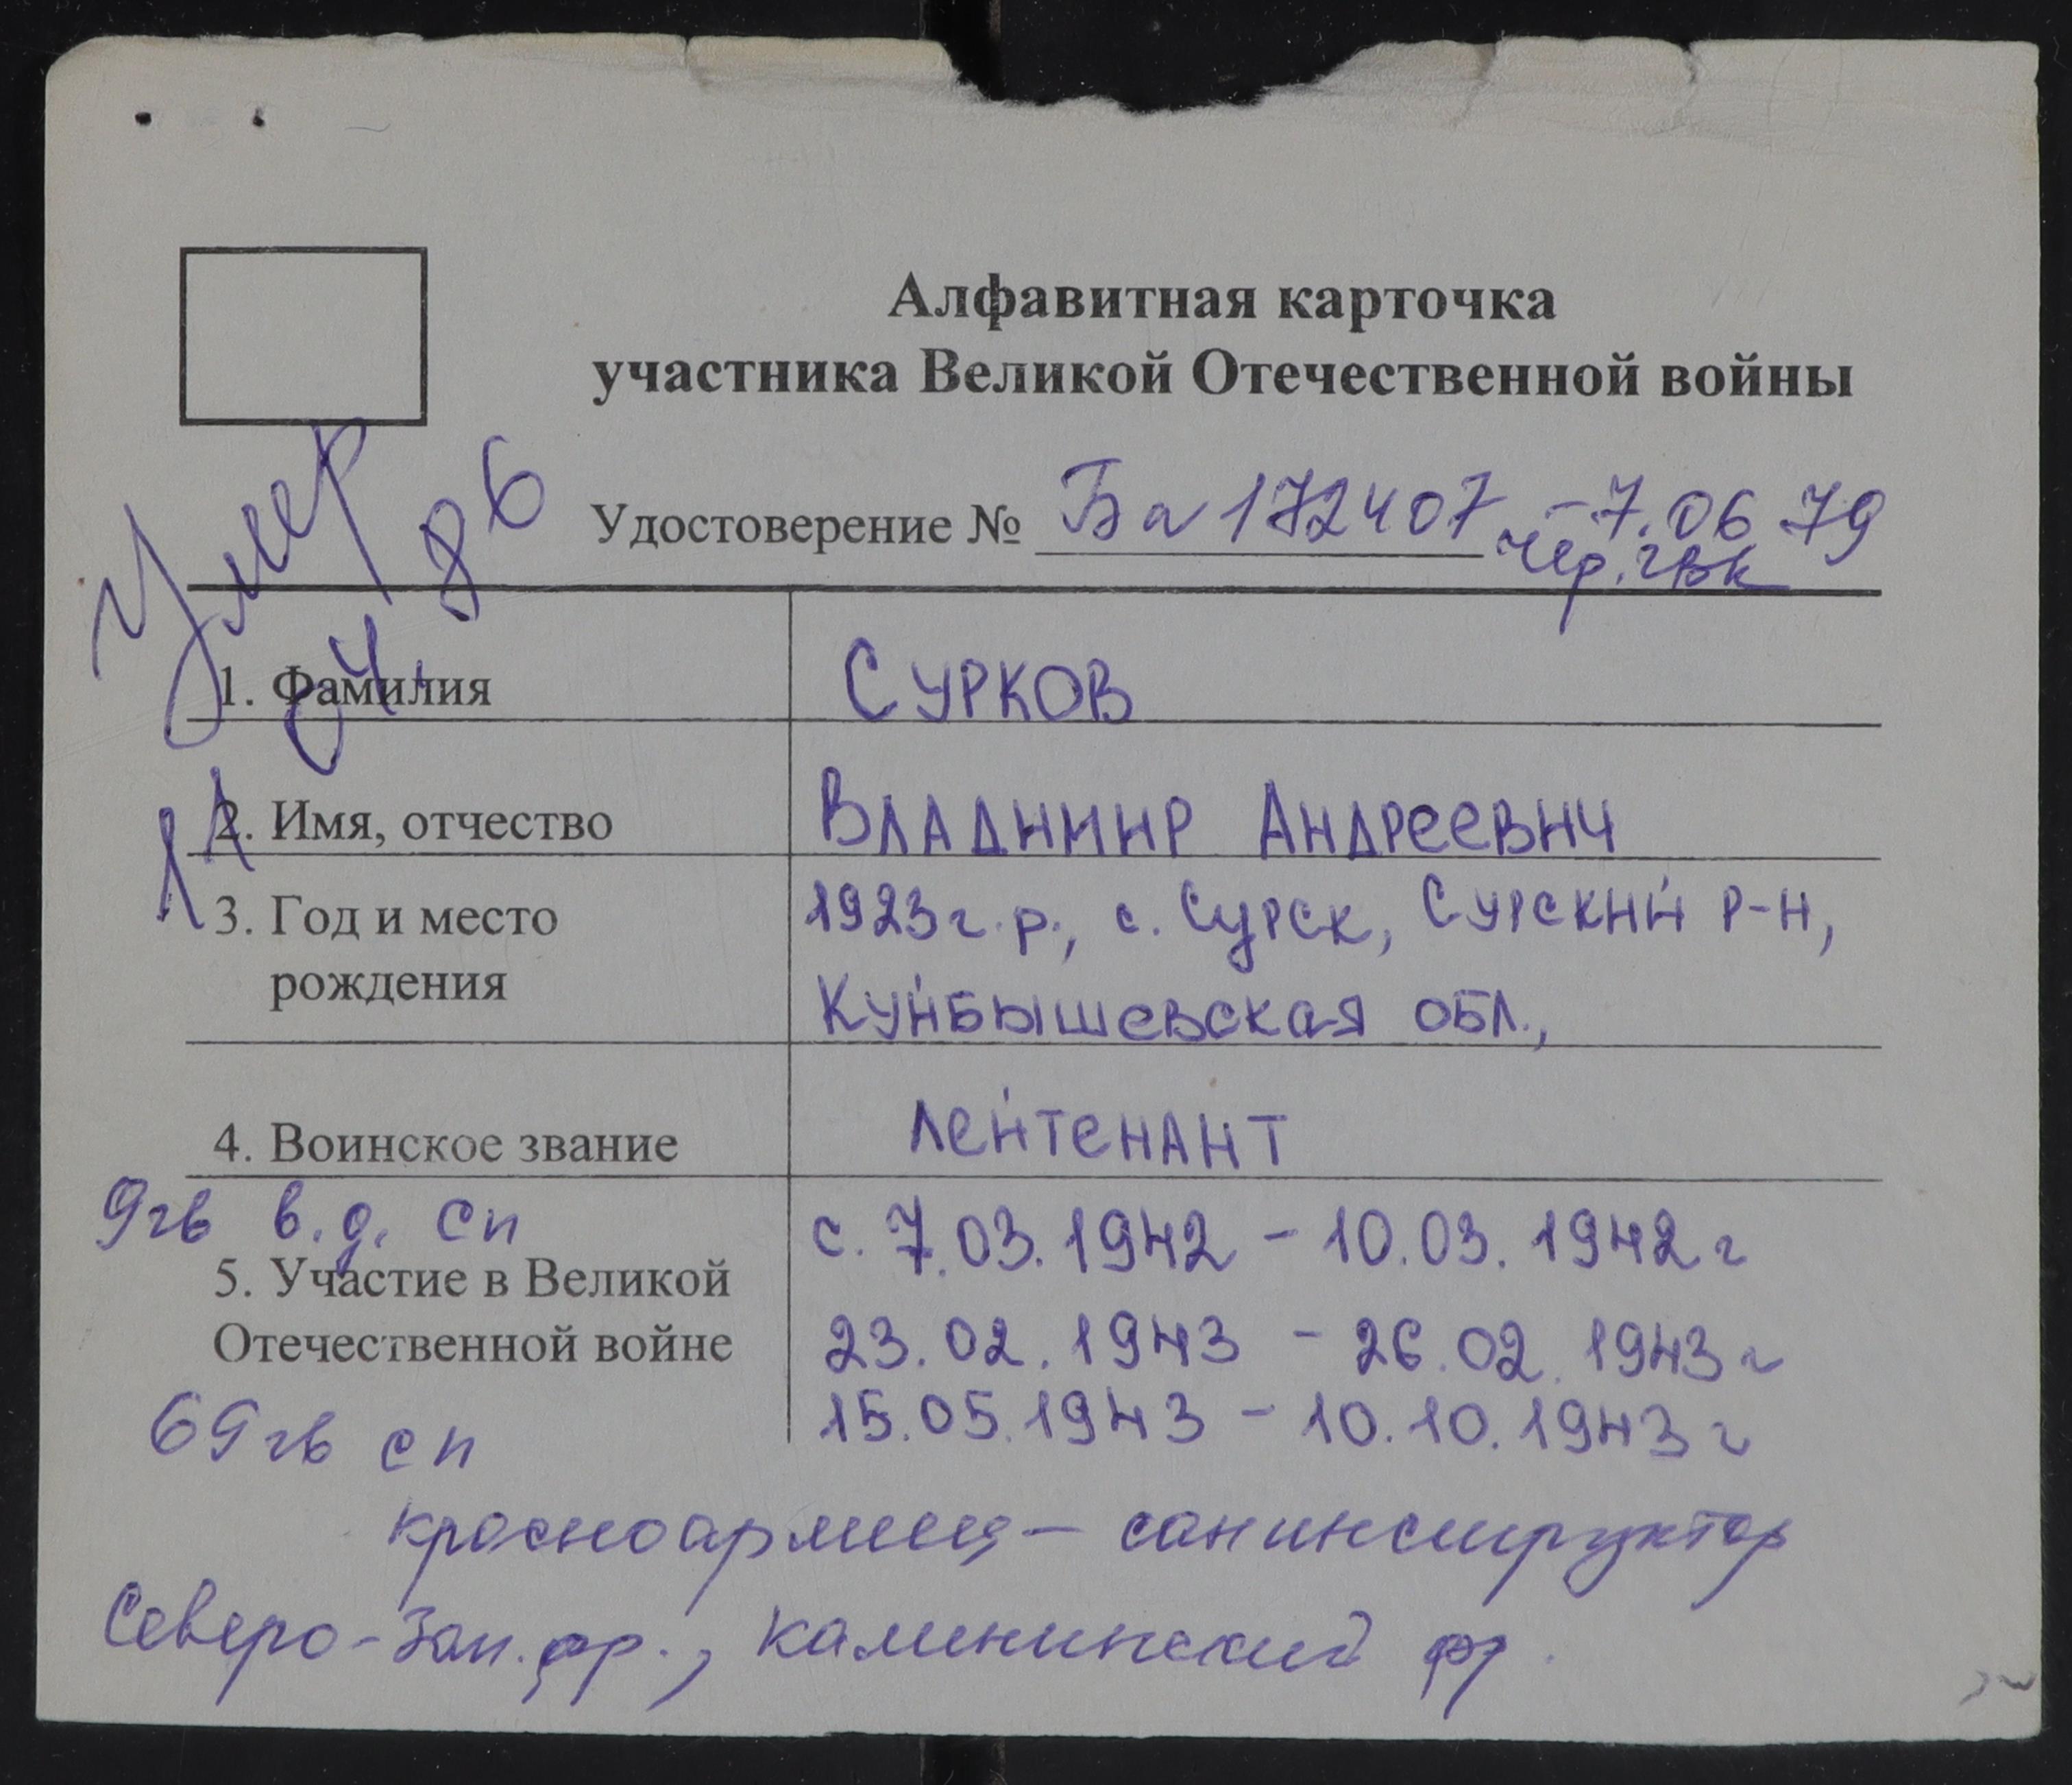 Алфавитная карточка
участника Великой Отечественной войны
Удостоверение № Ба 172407 – 7.06 79
Чер. ГВК
Умер
11 04. 86
1. Фамилия Сурков
2. Имя, отчество Владимир Андреевич
3. Год и место 1923 г.р., с. Сурск, Сурский р-н,
рождения Куйбышевская обл.,
4. Воинское звание лейтенант
9гв в.д. сп с. 7.03.1942 – 10.03.1942 г
5. Участие в Великой
Отечественной войне 23.02.1943 – 26.02.1943 г
69гв сп 15.05.1943 – 10.10.1943 г
красноармеец – санинструктор
Северо-Зап. фр., Калининский фр.